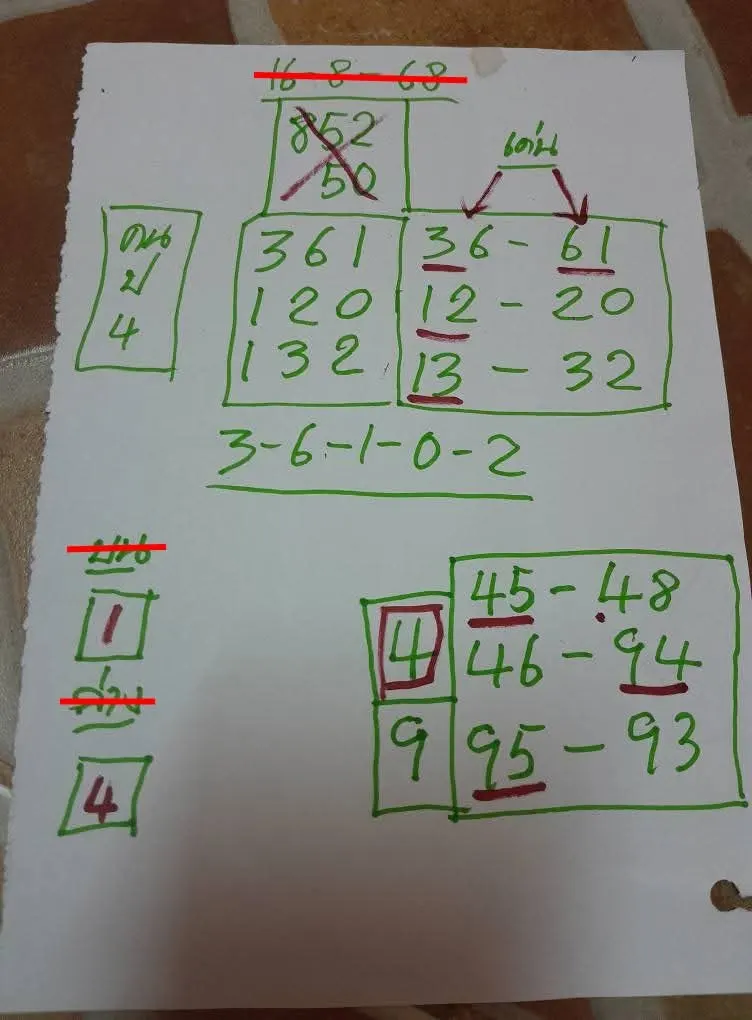 16-8-68
852
50
เด่น
คน
ป
4
361
36-61
120
12-20
132
13-32
3-6-1-0-2
บน
1
ล่าง
4
4
45-48
46-94
9
95-93